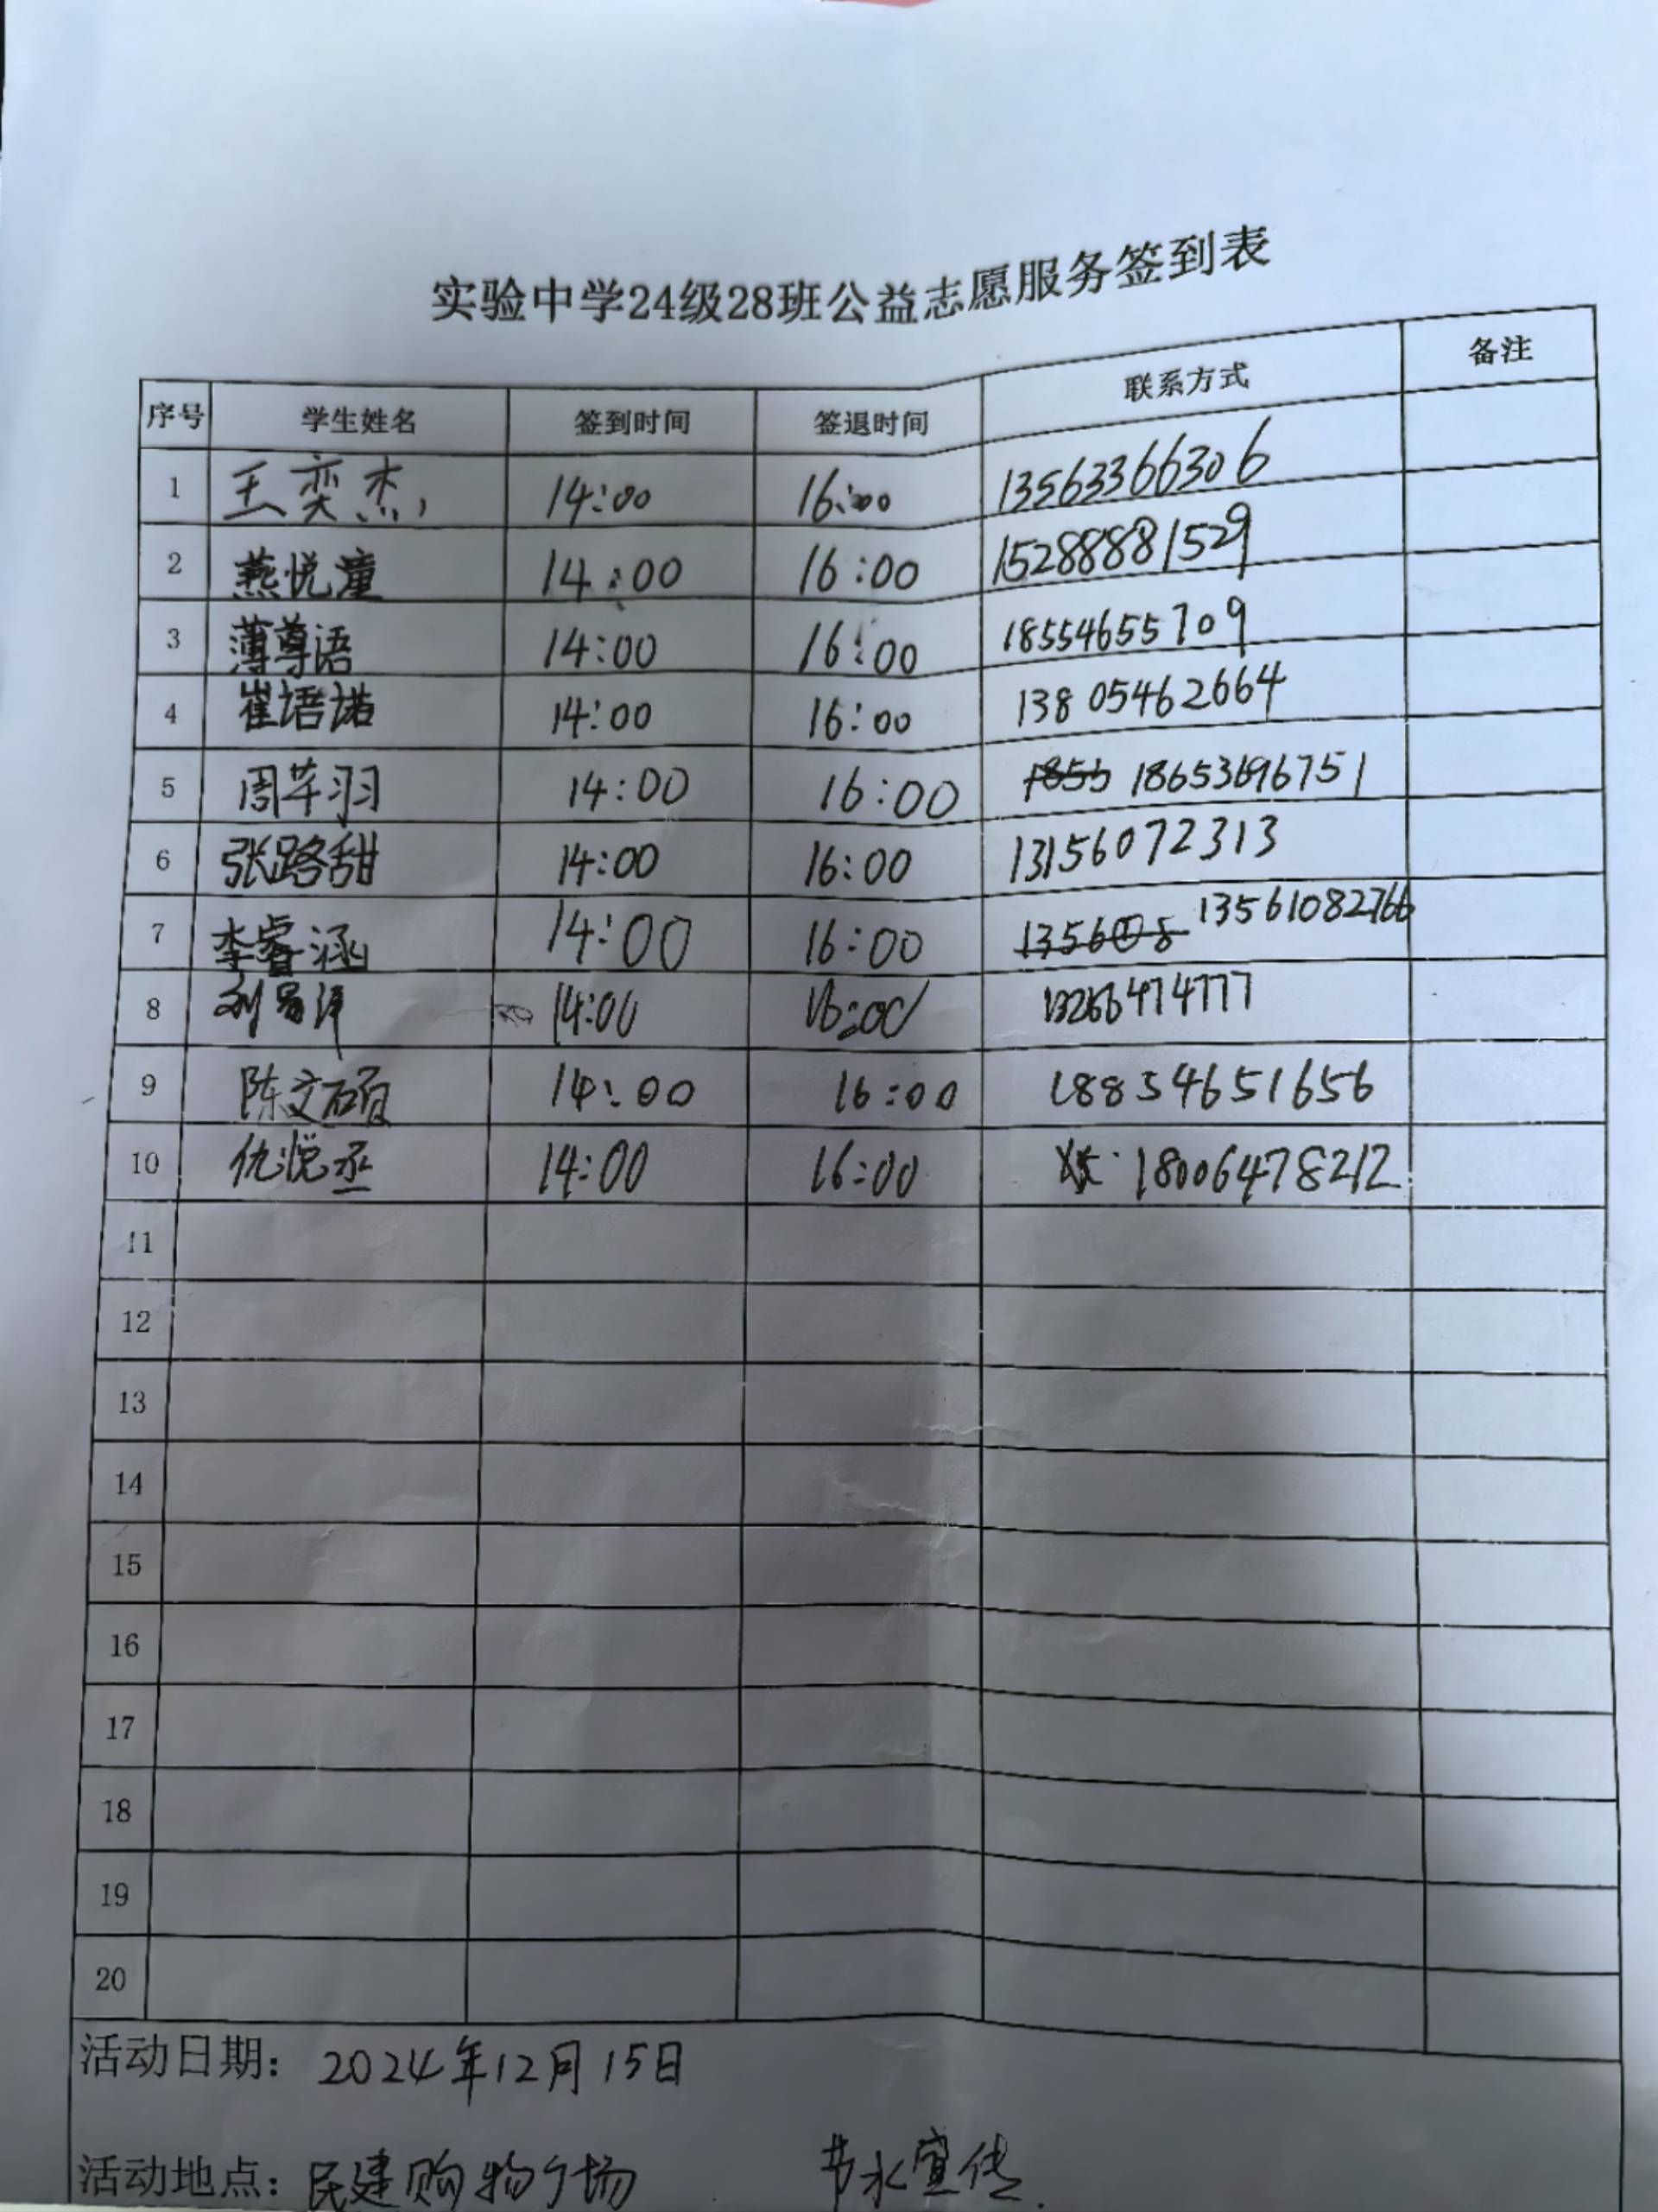 实验中学24级28班公益志愿服务签到表
序号 学生姓名 签到时间 签退时间 联系方式 备注
1 王奕杰 14:00 16:00 13563366306
2 燕悦潼 14:00 16:00 15288881529
3 薄尊语 14:00 16:00 18554655709
4 崔语诺 14:00 16:00 13805462664
5 周芊羽 14:00 16:00 18653696751
6 张路甜 14:00 16:00 13156072313
7 李睿涵 14:00 16:00 13561082766
8 14:00 16:00
9 陈文硕 14:00 16:00 18854651656
10 仇悦丞 14:00 16:00 18006478212
11
12
13
14
15
16
17
18
19
20
活动日期: 2024年12月15日
活动地点: 民建购物广场 节水宣传.